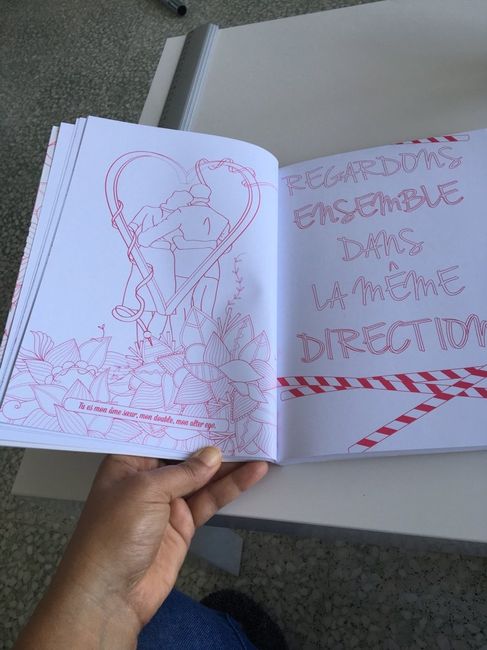 Tu es mon âme sœur, mon double, mon alter ego.
REGARDONS
ENSEMBLE
DANS
LA MÊME
DIRECTION